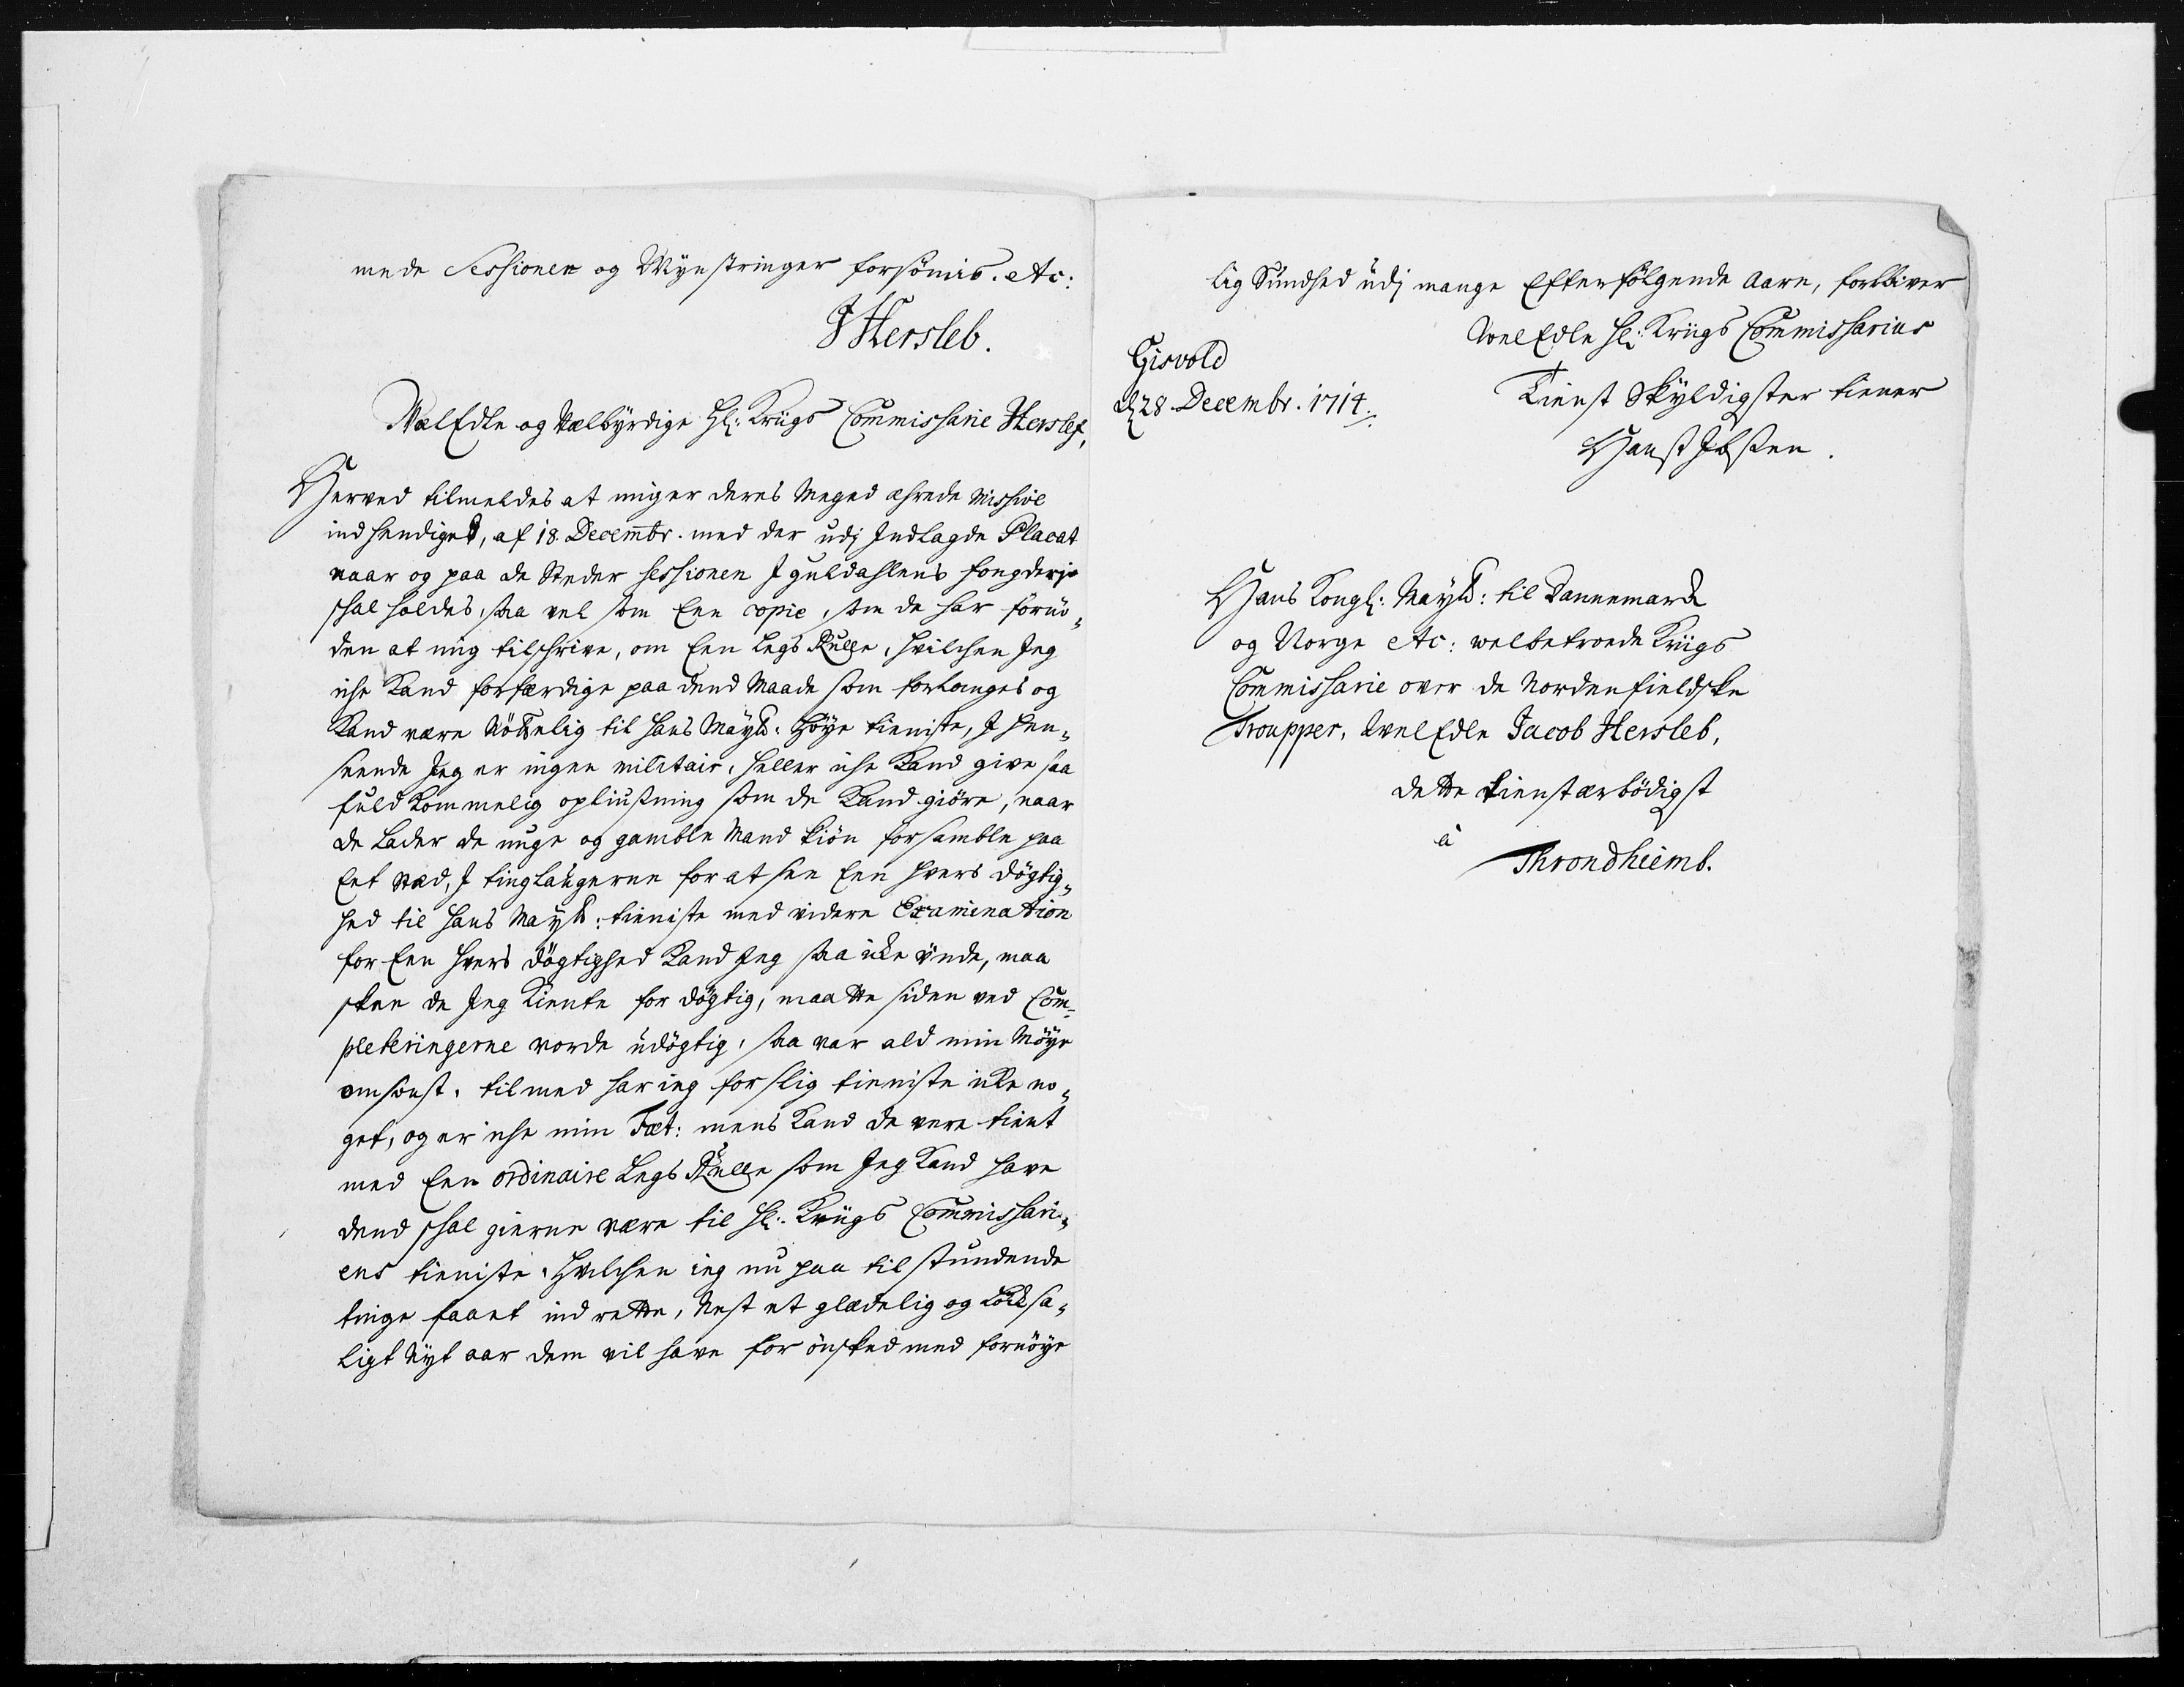 mede Sessioner og Mynstringer forsömis. etc:
J Hersleb.
WelEdle og Velbyrdige Hr: Kriigs Commissarie Herslef,
Herved tilmeldes at mig er deres Meged ærede Missive
indhendiget, af 18 Decembr. med der udj Indlagde Placat
naar og paa de Steder sessionen J guldahlens fougderje
schal holdes, saa vel som Een copie, som de har fornö-
den at mig tilschrive, om Een Legs Rulle, hvilchen Jeg
iche Kand forfærdige paa dend Maade som forlanges og
Kand være Nöttelig til hans Mayts: höye tieniste, J hen-
seende Jeg er ingen militair, heller iche Kand give saa
fuldKommelig opliusning som de Kand giöre, naar
de Lader de unge og gamble Mand Kiön forsamble paa
Eet Stæd, J tinglaugerne for at see Een hvers dögtig-
hed til hans Mayts: tieniste med videre Examination
for Een hvers dögtighed Kand Jeg saa icke inde, maa
skee de Jeg Kiente for dögtig, maatte siden ved Com-
pleteringerne vorde udögtig, saa var ald min Möye
omsonst. tilmed har ieg for slig tieniste icke no-
get, og er iche min Fæt: mens Kand de vere tient
med Een ordinaire Legs Rulle som Jeg Kand have
dend schal gierne være til Hr: Kriigs Commissari-
ens tieniste, hvilchen ieg nu paa tilstundende
tinge faaet ind rette, Nest et glædelig og Löcksa-
ligt Nyt aar dem vil have for önsked med fornöye
lig Sundhed udj mange Efterfölgende Aare, forbliver
WelEdle Hr: Kriigs Commissarius
Gisvold
d 28 Decembr. 1714.
Tienst Skyldigster tiener
Hans Ibsen.
Hans Kongl: Mayts: til Dannemarck
og Norge etc: welbetroede Kriigs
Commissarie over de Nordenfieldske
Troupper, WelEdle Jacob Hersleb,
dette tienstærbödigst
à
Throndhiemb.